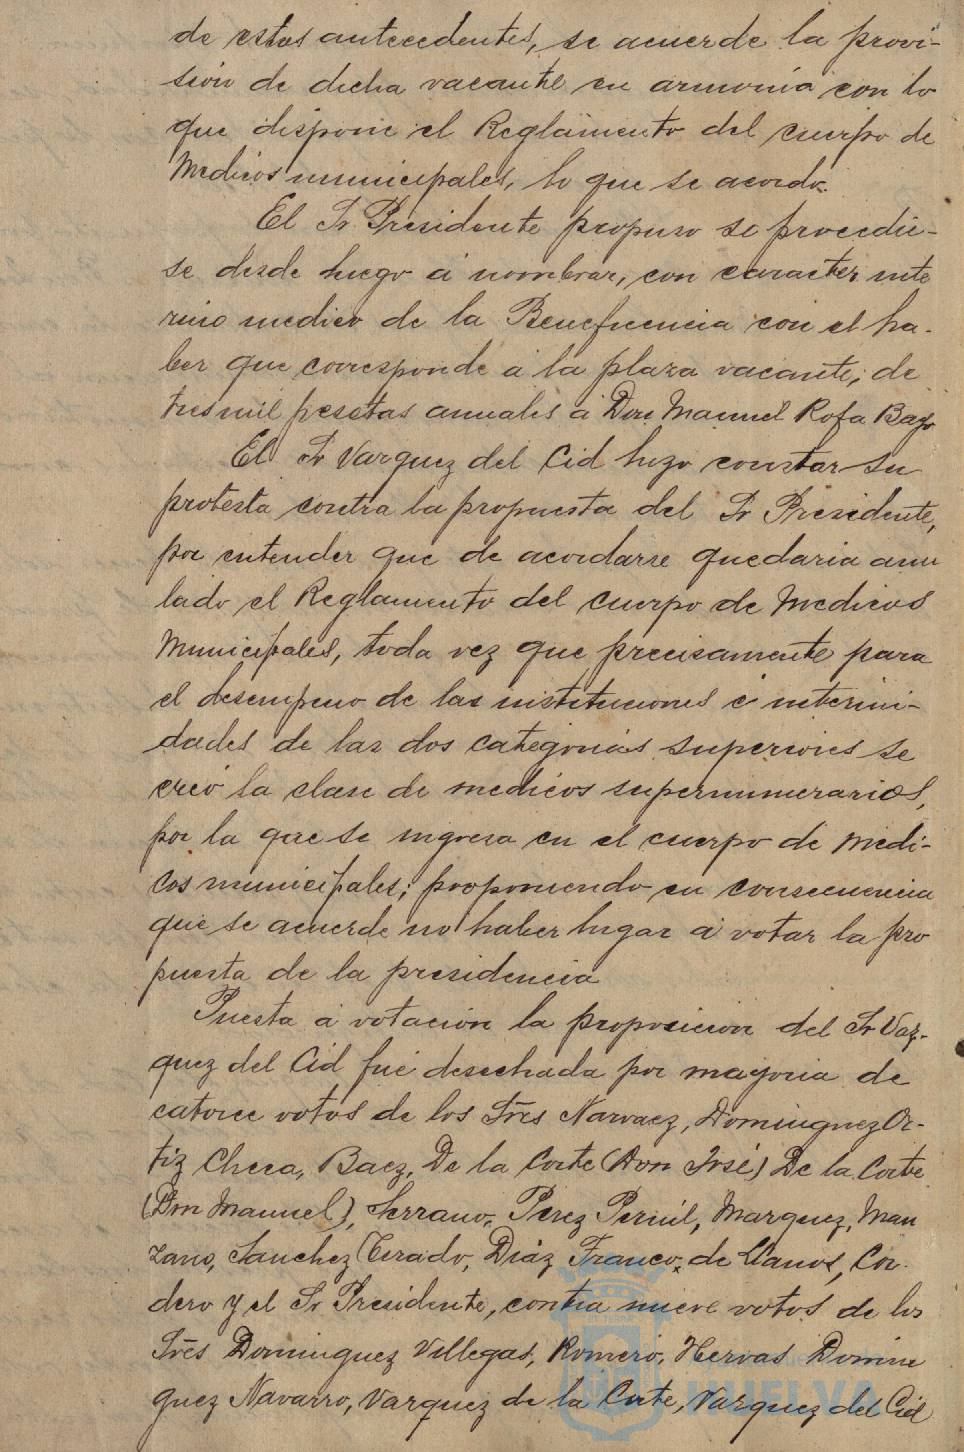 de estos antecedentes, se acuerde la provi-
sión de dicha vacante en armonía con lo
que dispone el Reglamento del cuerpo de
Medicos municipales, lo que se acordó.
El Sr Presidente propuso se procedie-
se desde luego á nombrar, con caracter inte
rino medico de la Beneficencia con el ha-
ber que corresponde á la plaza vacante, de
tres mil pesetas anuales á Don Manuel Rofa Bago
El Sr Vazquez del Cid hizo constar su
protesta contra la propuesta del Sr Presidente,
por entender que de acordarse quedaria anu
lado el Reglamento del cuerpo de Medicos
Municipales, toda vez que precisamente para
el desempeno de las instituciones é interini-
dades de las dos categorias superiores se
creó la clase de medicos supernumerarios,
por la que se ingresa en el cuerpo de medi-
cos municipales; proponiendo en consecuencia
que se acuerde no haber lugar á votar la pro
puesta de la presidencia
Puesta á votación la proposicion del Sr Vaz-
quez del Cid fué desechada por mayoria de
catorce votos de los Sres Narvaez, Dominguez Or-
tiz Checa, Baez, De la Corte (Don José) De la Corte
(Don Manuel), Serrano, Perez Pernil, Marquez, Man
zano, Sanchez Tirado, Diaz Franco, de Llanos, Cor-
dero y el Sr Presidente, contra nueve votos de los
Sres Dominguez Villegas, Romero, Hervas Domin
guez Navarro, Vazquez de la Corte, Vazquez del Cid
HUELVA